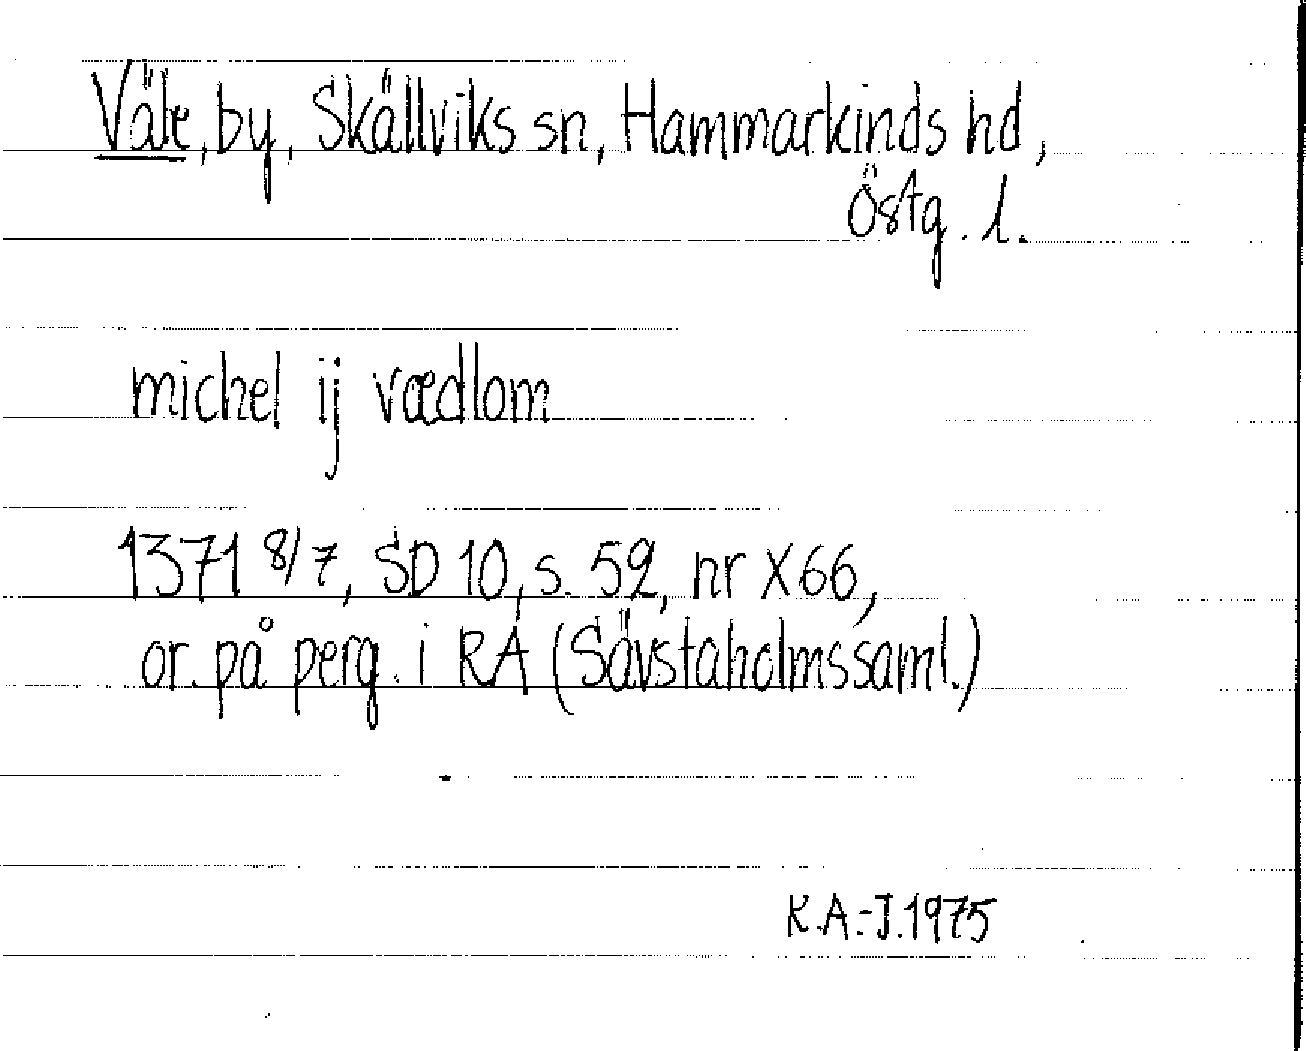 Väle, by, Skällviks sn, Hammarkinds hd,
Östg. l.
michel ij vædlom
1371 8/7, SD 10, s. 52, nr X66,
or. på perg. i RA (Sävstaholmssaml.)
K.A.-J. 1975